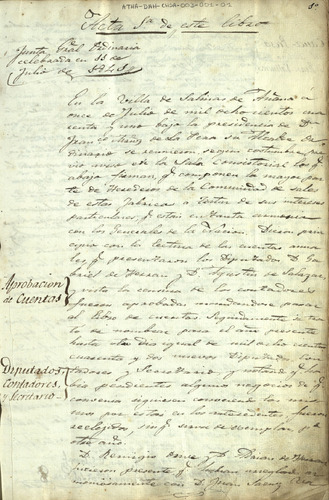 ATHA-DAH-CHSA-003-001-01
5º
Acta 5ª de este libro
Junta Gral Ordinaria
celebrada en 11 de
Julio de 1841
En la Villa de Salinas de Añana a
once de Julio de mil ochocientos cua
renta y uno bajo la presidencia de Dn
de la Pera su Alcalde Or
dinario se reunieron segun costumbre pre
vio aviso en la Sala Consistorial los q.
abajo firman, q. componen la mayor par
te de Herederos de la Comunidad de sales
de estas fabricas a tratar de sus intereses
particulares, q. estan en Junta
con los generales de la Nacion. Dieron prin
cipio con la lectura de las cuentas anua
les q. presentaron los Diputados D. Ga
briel de y D. Agustin de Salazar
y vista la censura de los contadores
fueron aprobadas, mandandose pasar
al Libro de cuentas. Seguidamente se tra
to de nombrar para el año presente
hasta otro dia igual de mil ochocientos
cuarenta y dos nuevos Diputados, Con
tadores y Secretario y notando q. ha
bia pendientes algunos negocios de q.
convenia siguiesen conociendo los mis
mos por estar en los antecedentes, fueron
reelegidos, sin q. sirva de exemplar pa
otro año.
D. Remigio y D. de
hicieron presente q.
con D. Juan Saenz
Aprobacion
de Cuentas
Diputados,
Contadores,
y Secretario